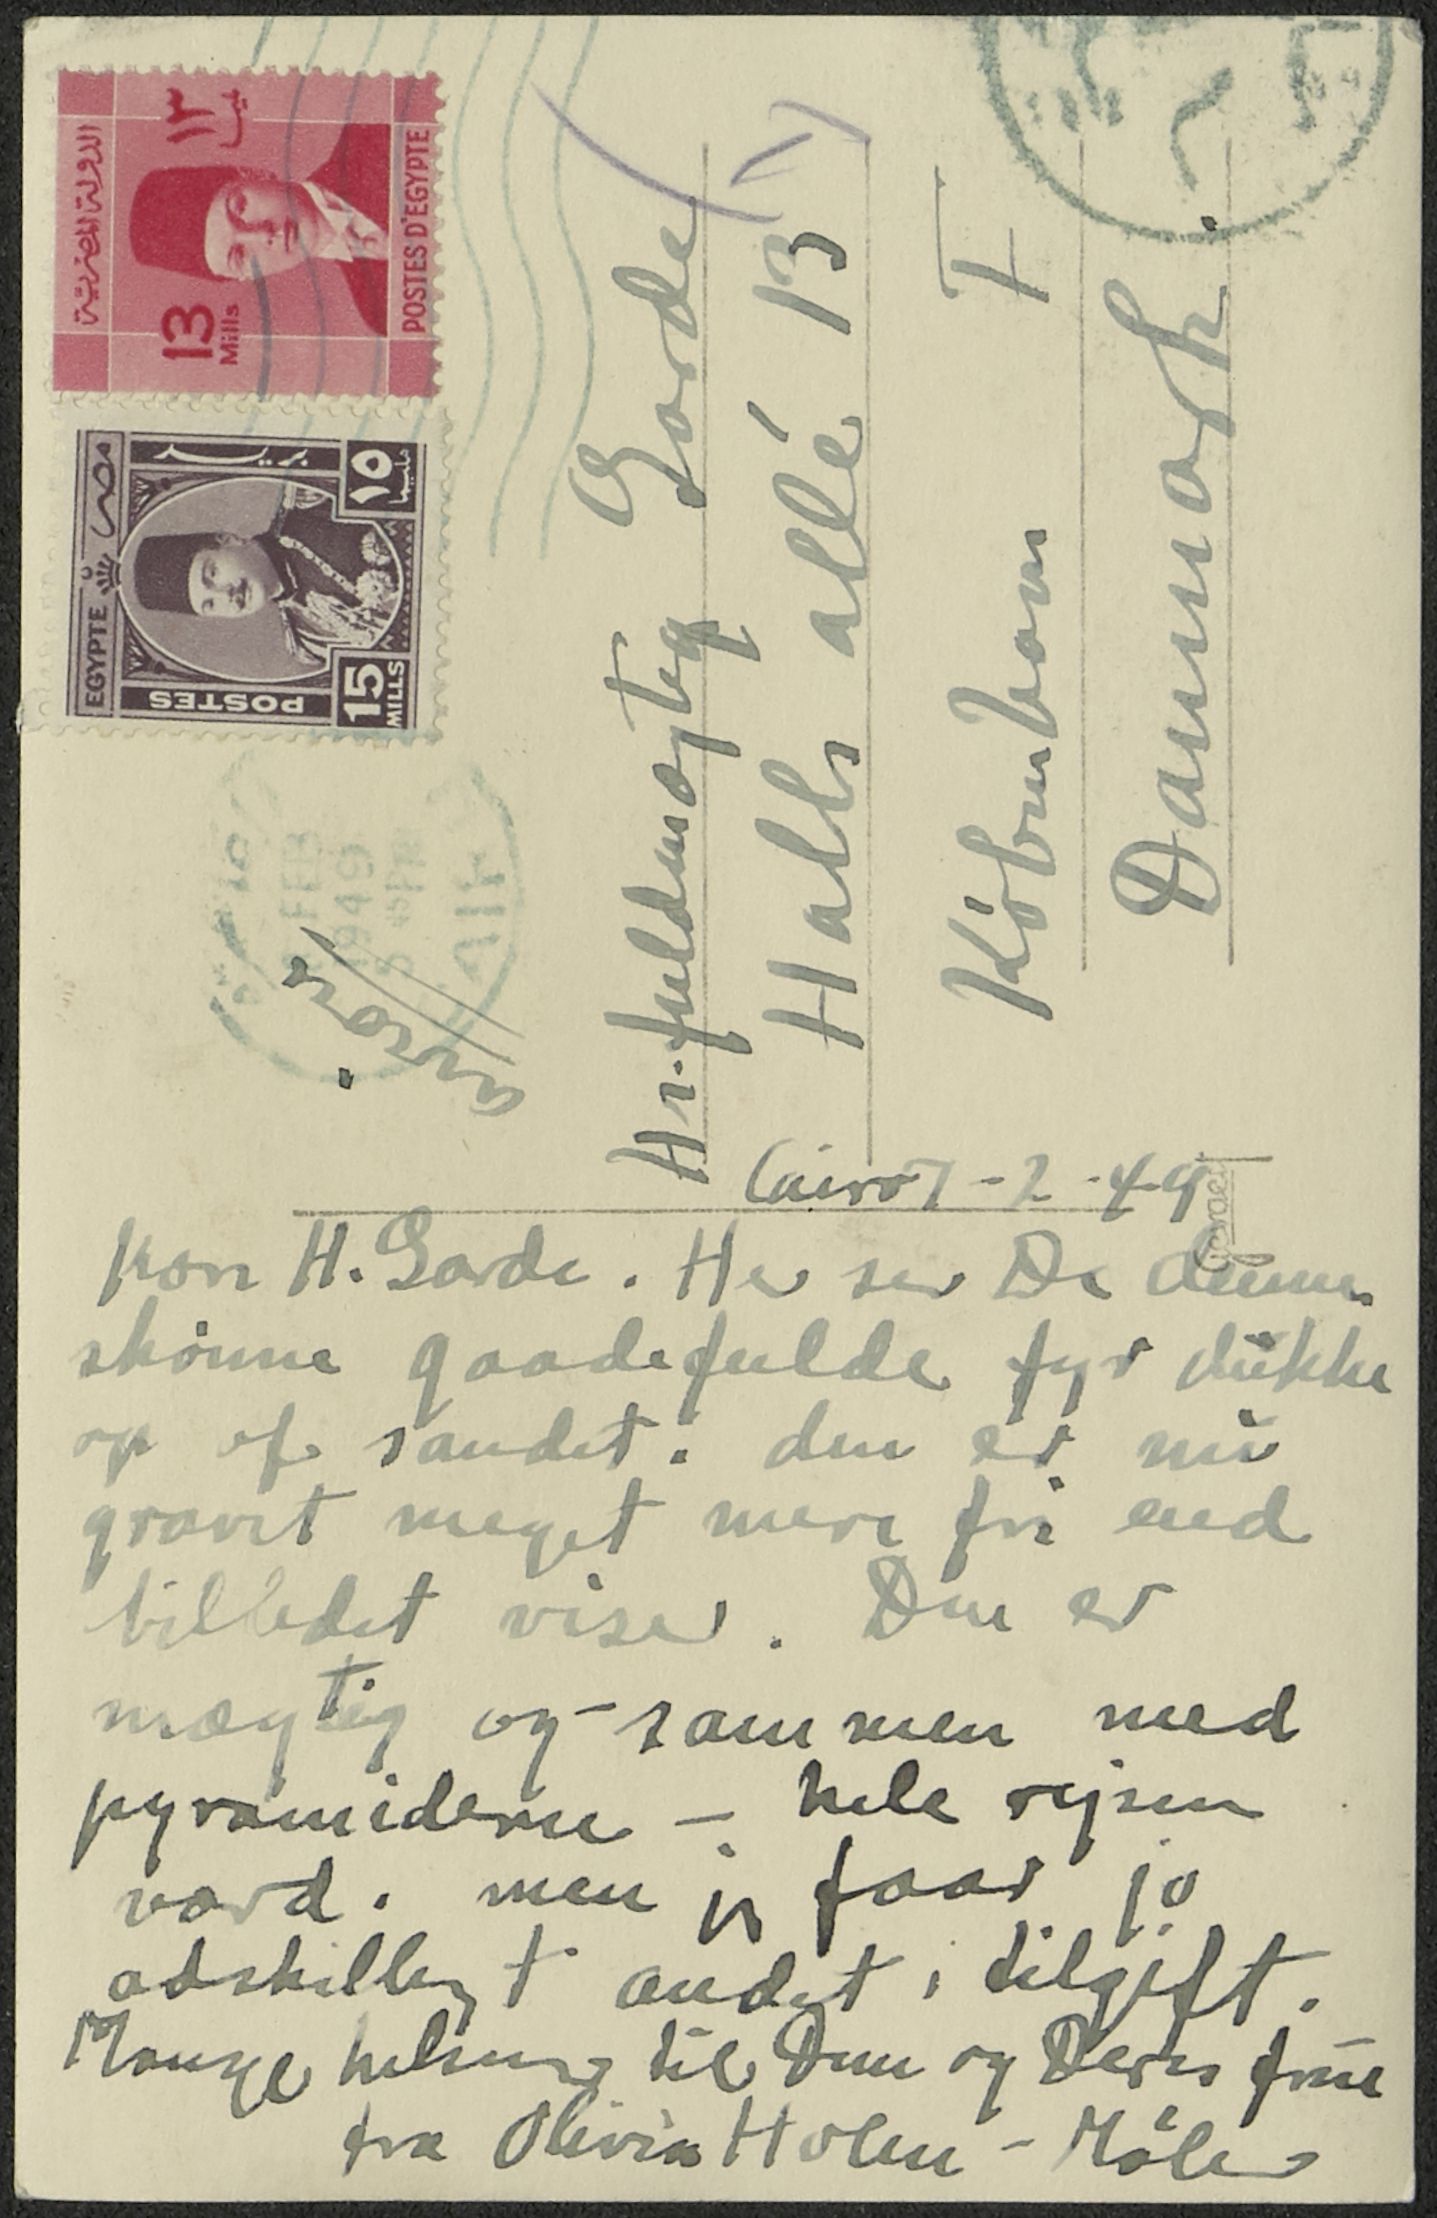 الدولة المصرية
١٣
13
Mills
POSTES D'EGYPTE
مصر
بريد
١٥
EGYPTE
POSTES
15
MILLS
FEB
1949
Hr. fuldmægtig Garde
Halls allé 13
København F
Danmark.
Cairo 7-2-49
kære H. Garde. Her ser De denne
skønne gaadefulde fyr dukke
op af sandet. den er nu
gravet meget mere fri end
billedet viser. Den er
mægtig og - sammen med
pyramiderne - hele rejsen
værd. men jeg faar jo
adskilligt andet i tilgift.
Mange hilsner til Dem og Deres frue
fra Olivia Holm-Møller